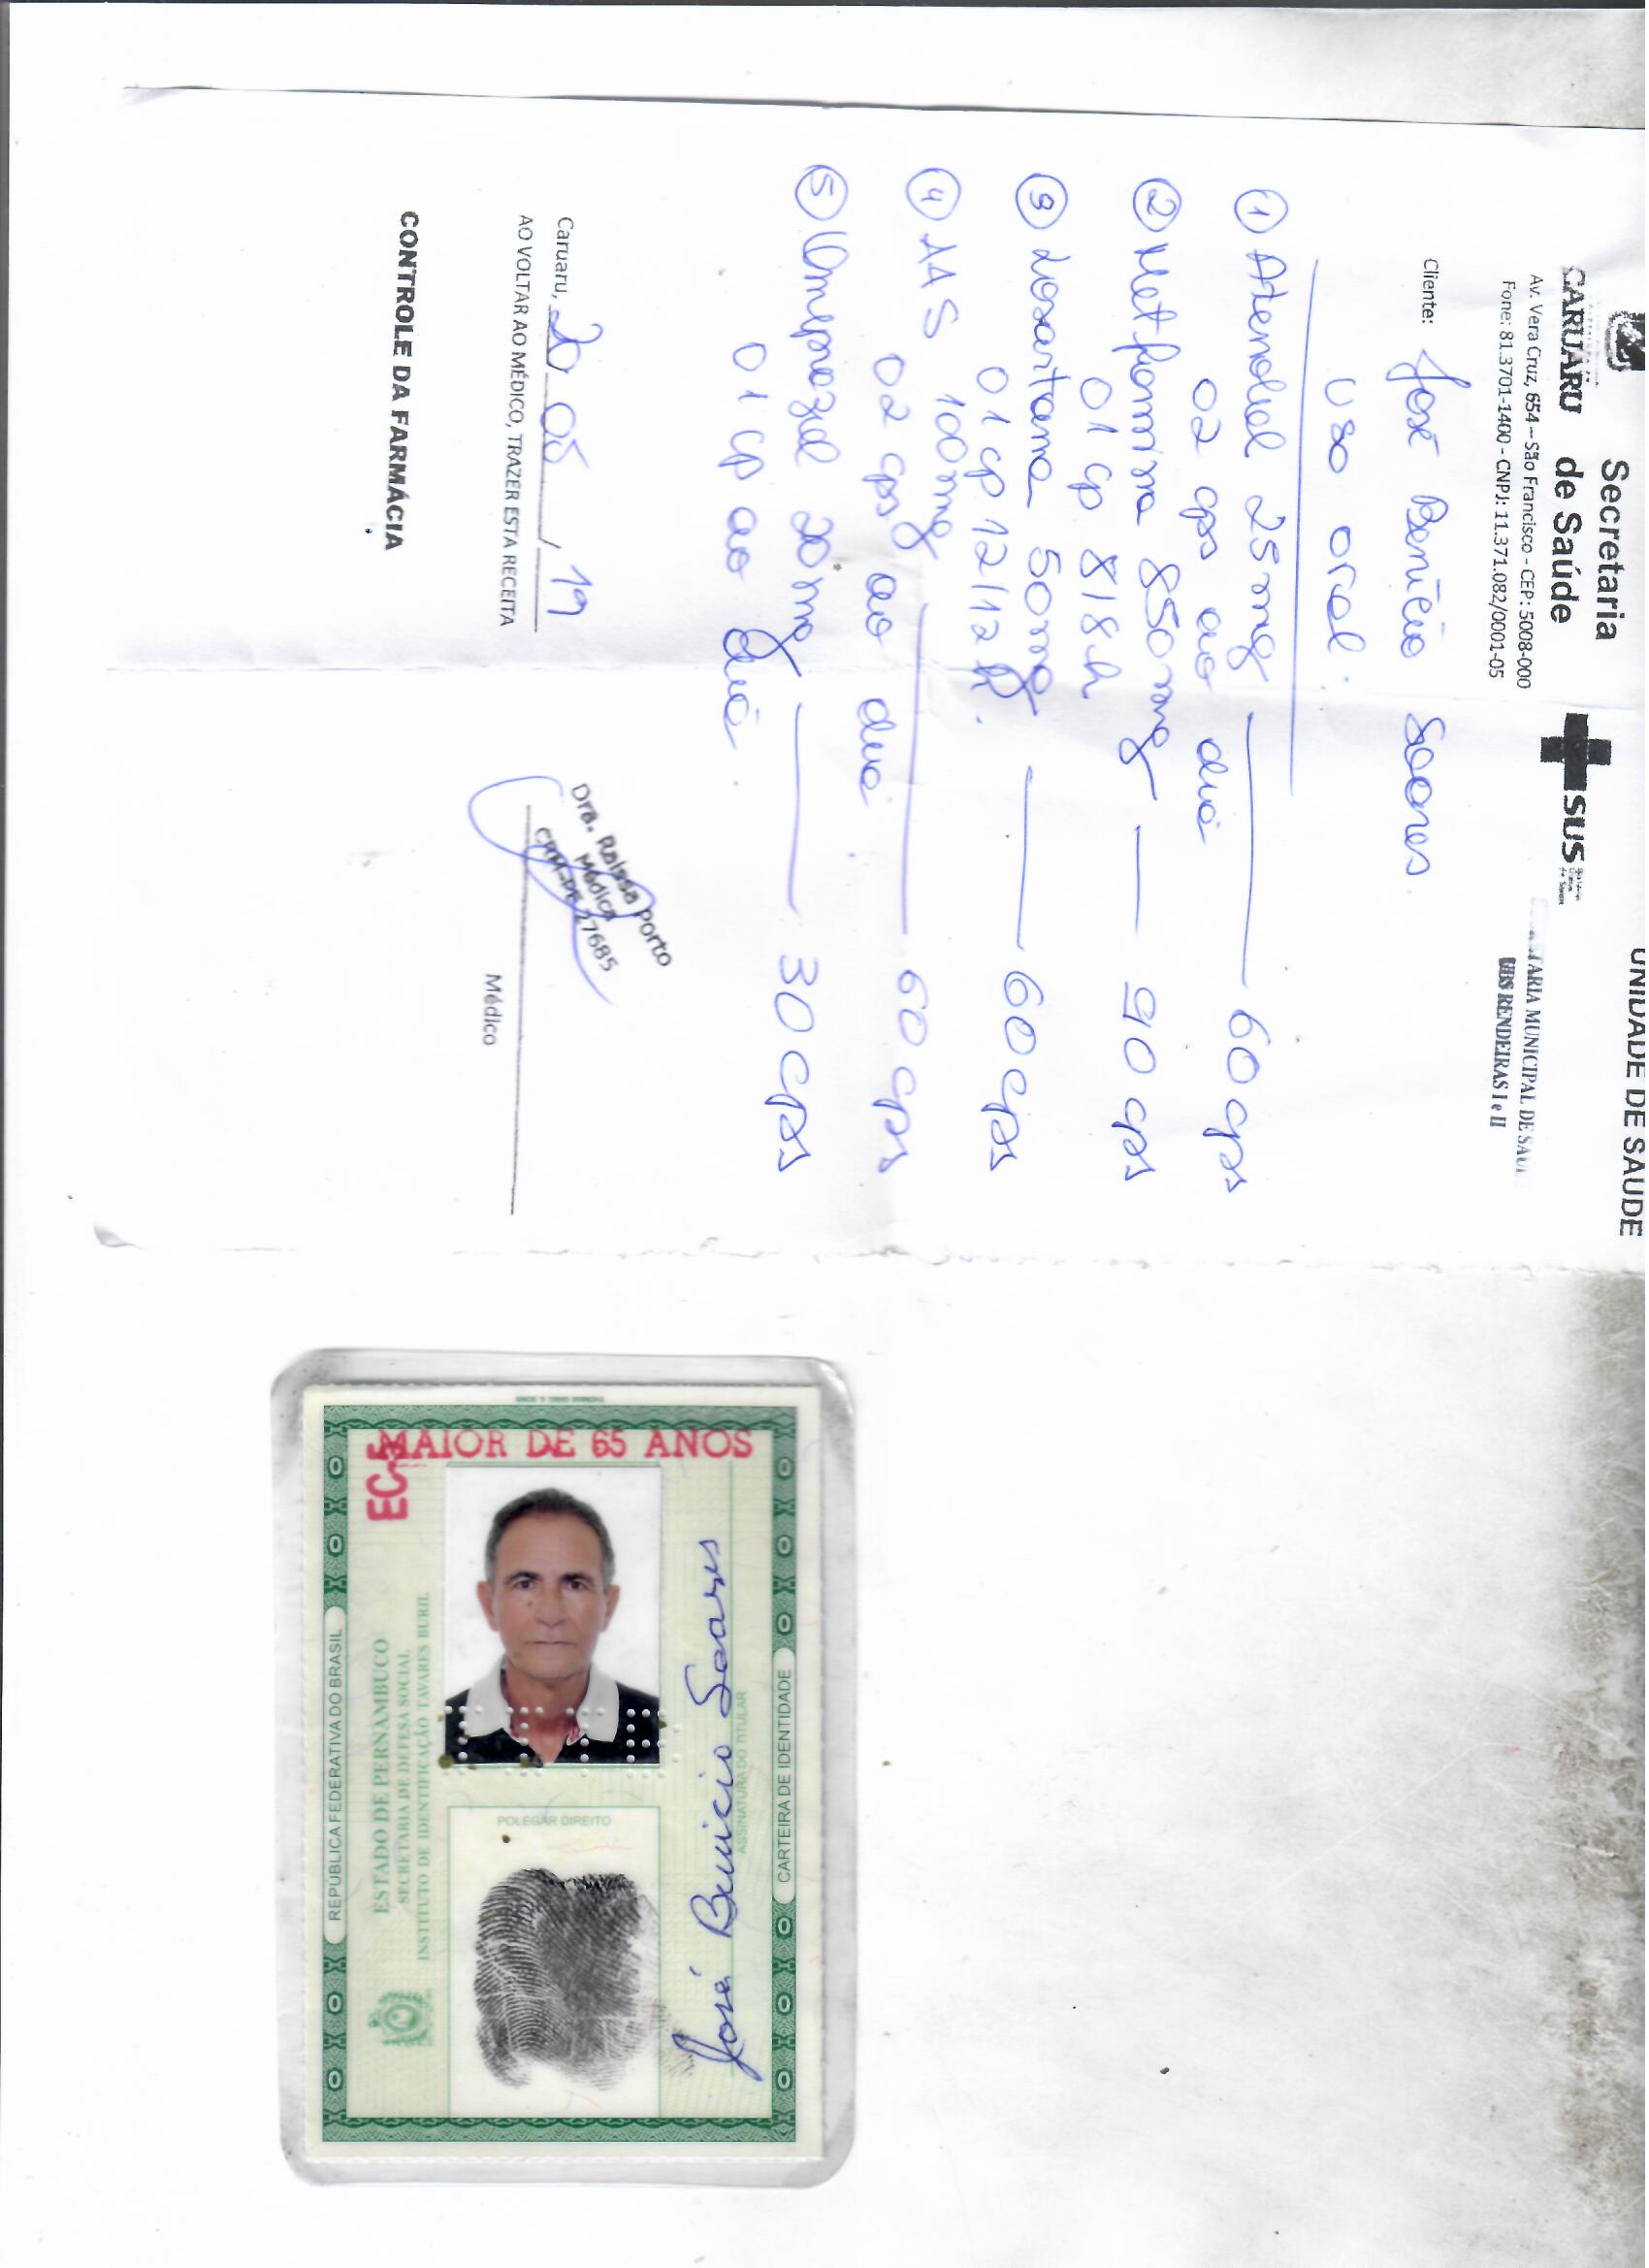 UNIDADE DE SAUDE
Secretaria
CARUARU de Saúde
SUS
Av. Vera Cruz, 654 – São Francisco - CEP: 5008-000
Fone: 81.3701-1400 - CNPJ: 11.371.082/0001-05
TARIA MUNICIPAL DE SAU
UBS RENDEIRAS I e II
Cliente: José Benício Soares.
Uso oral:
① Atenolol 25mg — 60 cps
02 cps ao dia
② Metformina 850mg — 90 cps
01 cp 8/8h
③ Losartana 50mg — 60 cps
01 cp 12/12h.
④ AAS 100mg — 60 cps
02 cps ao dia
⑤ Omeprazol 20mg — 30 cps
01 cp ao dia.
Caruaru, 20/05/19
AO VOLTAR AO MÉDICO, TRAZER ESTA RECEITA
Dra. Raissa Porto
Médica
CRM-PE 27685
Médico
CONTROLE DA FARMÁCIA
REPUBLICA FEDERATIVA DO BRASIL
ESTADO DE PERNAMBUCO
SECRETARIA DE DEFESA SOCIAL
INSTITUTO DE IDENTIFICAÇÃO TAVARES BURIL
MAIOR DE 65 ANOS
POLEGAR DIREITO
José Benicio Soares
ASSINATURA DO TITULAR
CARTEIRA DE IDENTIDADE